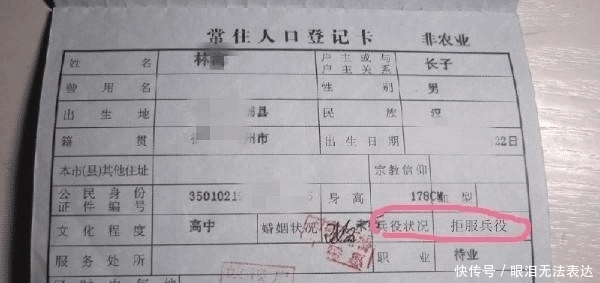 常住人口登记卡 非农业
姓名 林 户主或与户主关系 长子
曾用名 性别 男
出生地 县 民族 汉
籍贯 州市 出生日期 22日
本市(县)其他住址 宗教信仰
公民身份证件编号 35010219 身高 178CM 血型
文化程度 高中 婚姻状况 未 兵役状况 拒服兵役
服务处所 职业 待业
快传号/眼泪无法表达